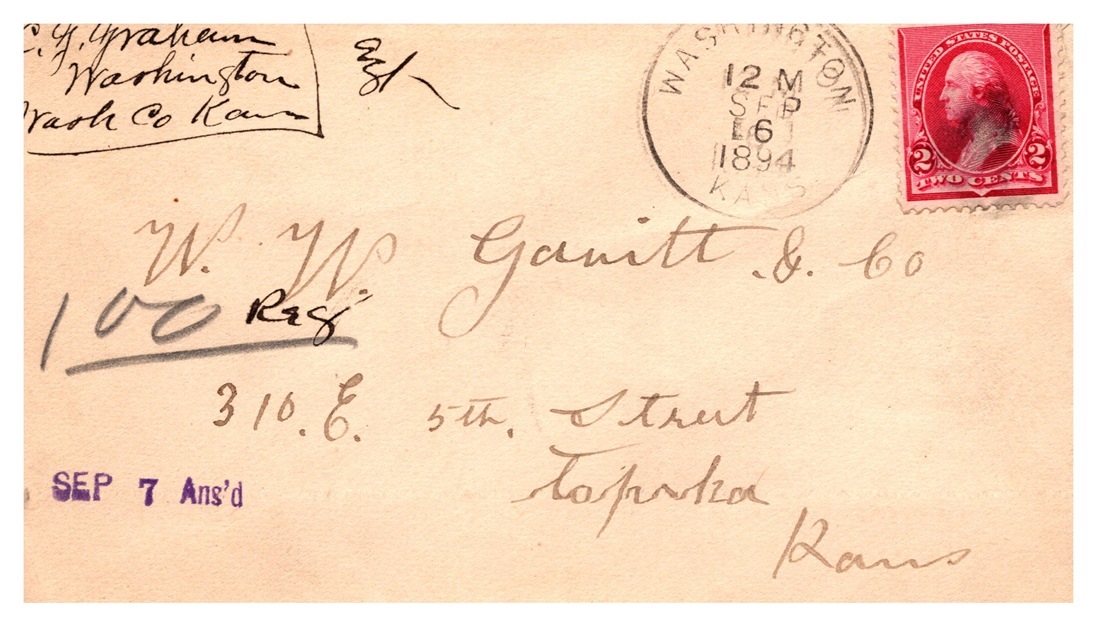 C. F. Graham
Washington
Wash Co Kans
WASHINGTON
12 M
SEP
6
1894
KANS
UNITED STATES POSTAGE
2 2
TWO CENTS
W. W. Gavitt & Co
100 Reg
310. E. 5th. Street
Topeka
Kans
SEP 7 Ans'd